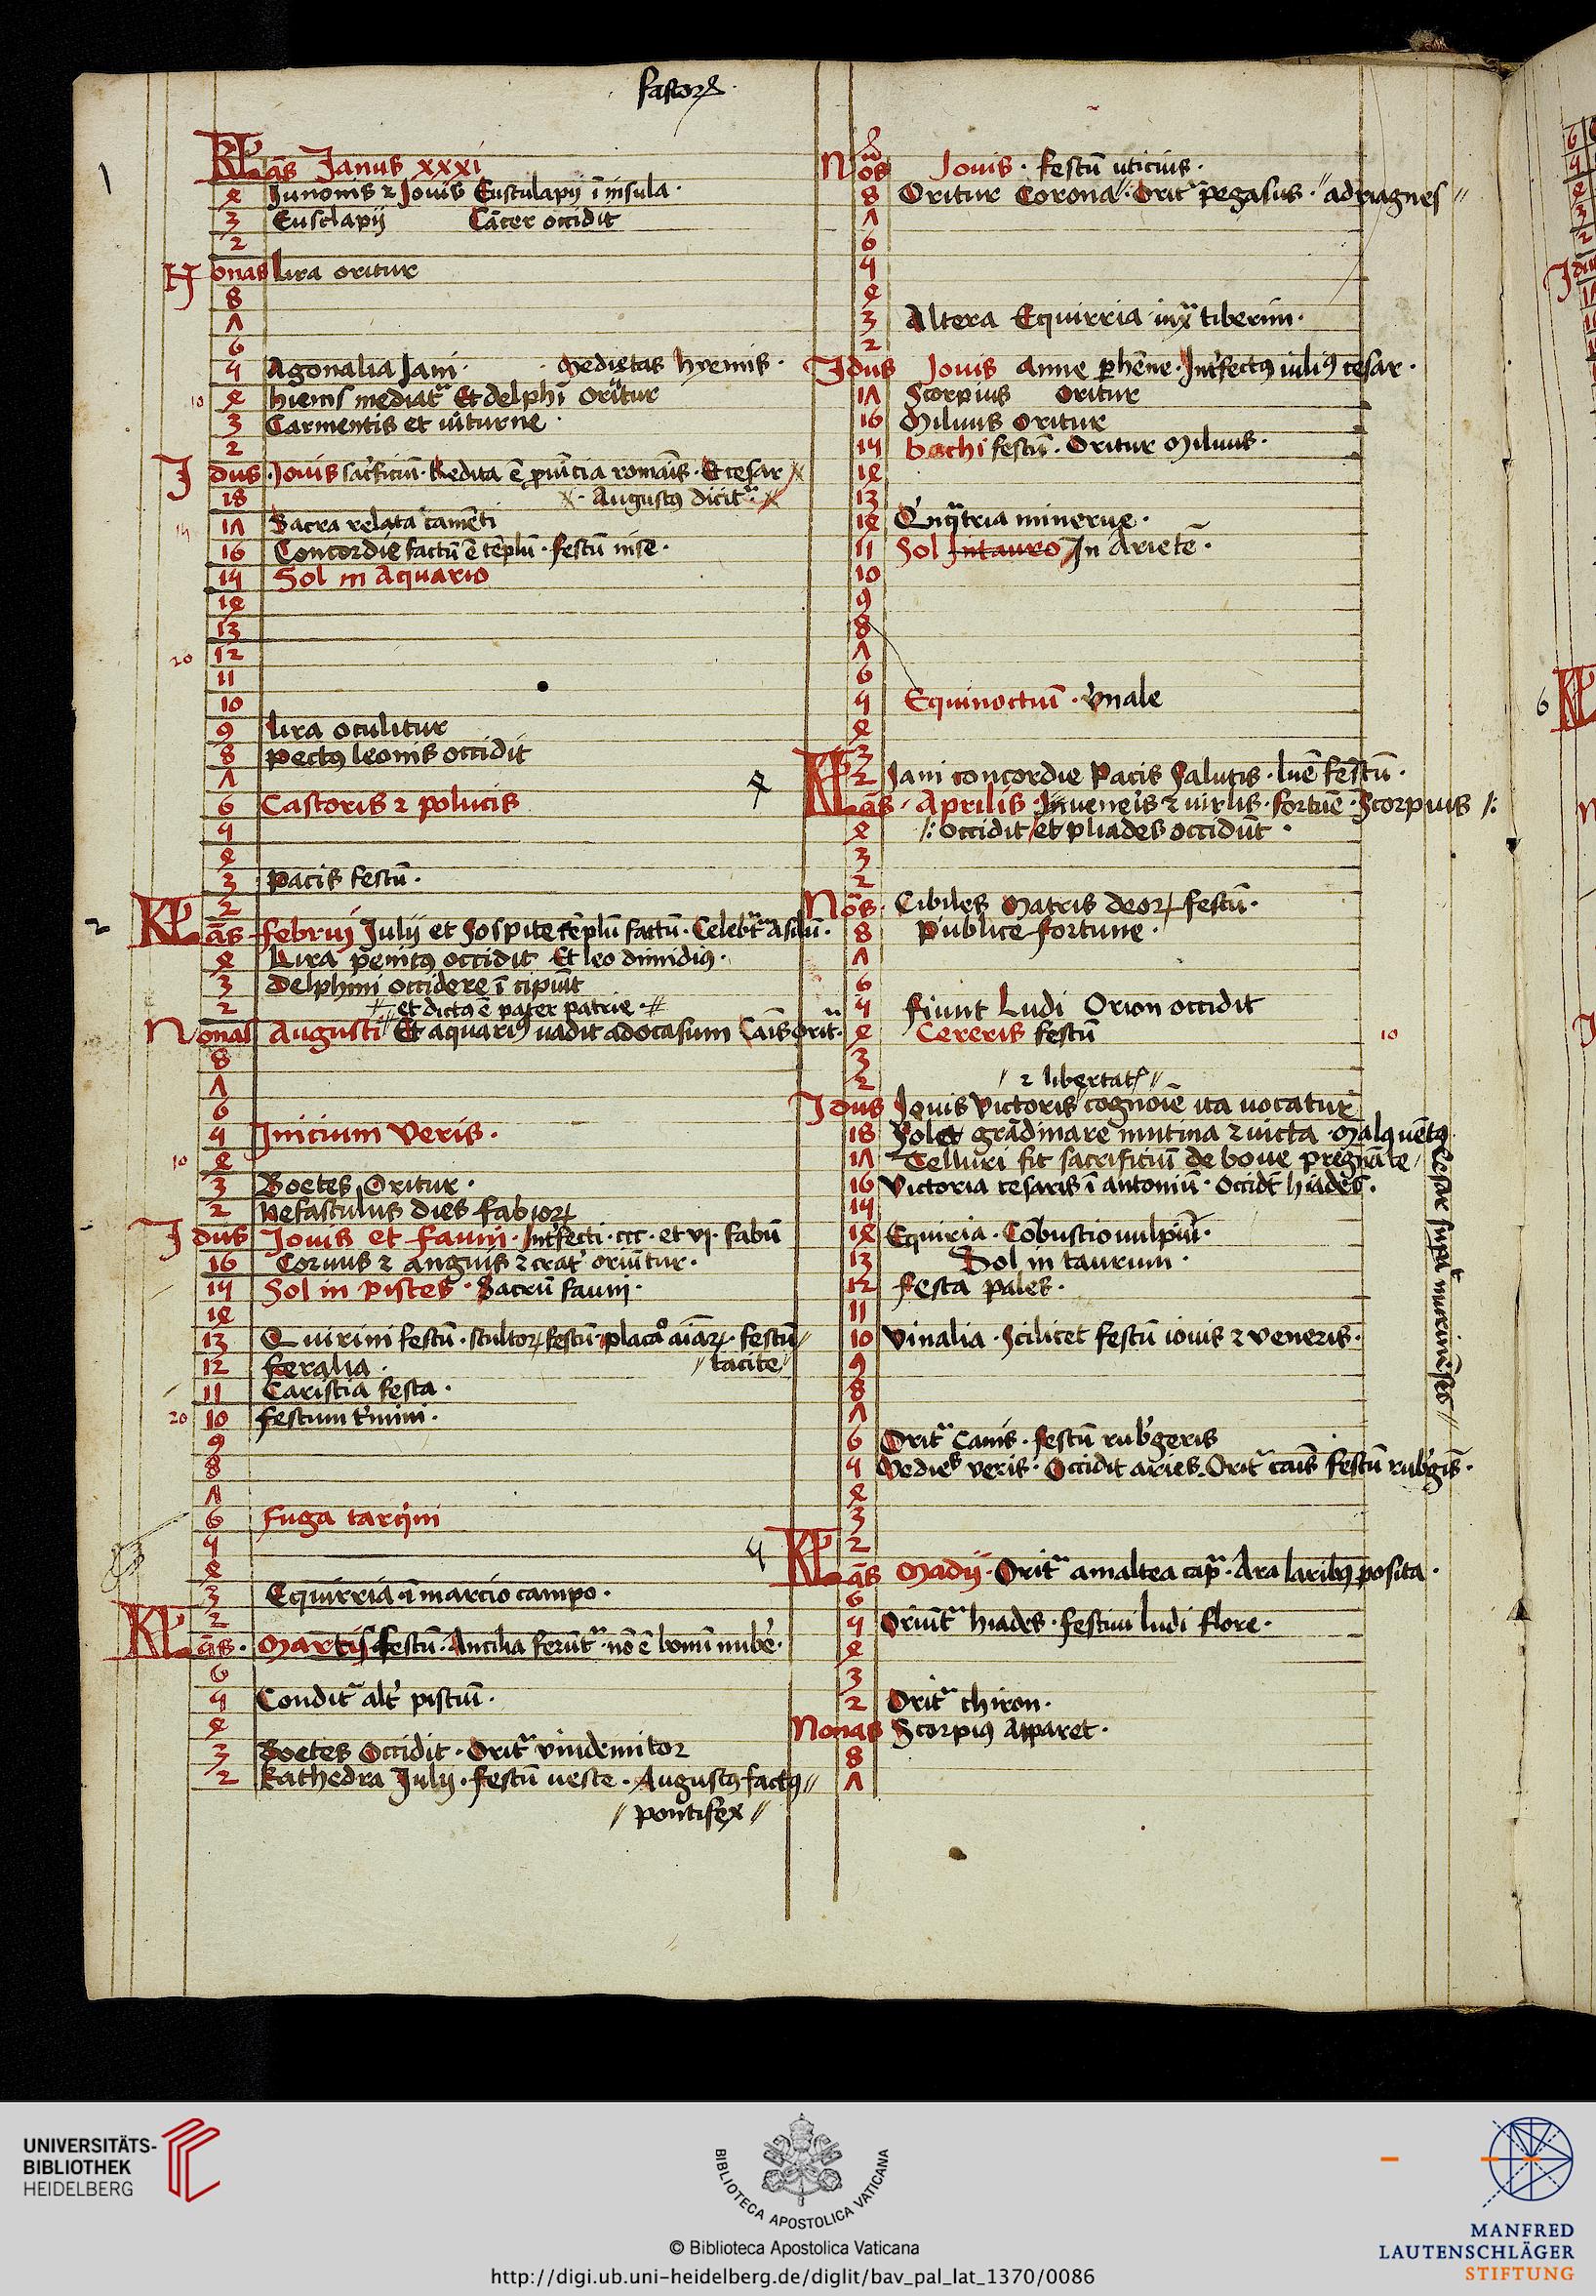 fastoꝝ.
1
KL
ās Janus xxxi
4 Junonis ⁊ Jouis Eusculapij ī insula.
3 Eusclapij Cācer occidit
2
Nonas lira oritur
8
7
6
5 Agonalia Jani. Medietas hyemis.
10 4 hiems mediat᷑ Et delphī oritur
3 Carmentis et iuturne.
2
Jdus. Jouis sac̓ficiū. Reddita ē ꝓuītia romāis. Et cesar
18 Augustꝰ dicit᷑.
17 Sacra relata camēti
16 Concordie factū ē tēplū. festū
15 Sol in Aquario
14
13
20 12
11
10
9 lira oculitur
8 pectꝰ leonis occidit
7
6 Castoris ⁊ polucis
5
4
3 pacis festū.
2
2 KL
ās februij Julij et Sospite tēplū factū. Celebr̄t᷑ Asilū.
4 Lira penitꝰ occidit Et leo dimidiꝰ.
3 Delphini occidere ī cipiūt
2 et dictꝰ ē pater patrie.
Nonas Augusti Et aquariꝰ uadit ad ocasum Cāis orit᷑.
8
7
6
5 Jnicium Veris.
10 4
3 Boetes Oritur.
2 Nefastulus dies fabioꝝ
Jdus Jouis et fauni. Int̓fecti. ccc. et vj. fabij
16 Coruus ⁊ anguis ⁊ crat̓ oriūtur.
15 Sol in pisces. Sacrū fauni.
14
13 Quirini festū. stultoꝝ festū. placat᷑ aīaꝝ. festū
12 feralia. tacite
11 Caristia festa.
20 10 festum t̓mini.
9
8
7
6 fuga tarq̓ini
5
4
3 Equirria ī marcio campo.
2
KL
ās. Martis festū. Ancilia ferūt᷑. nō ē bonū nub̓e.
6
5 Condit᷑ alt̓ pisciū.
4
3 Boetes Occidit. Orit᷑ vindemitor
2 Kathedra Julij. festū ueste. Augustꝰ factꝰ
pontifex
Nōs Jouis. festū uticius.
8 Oritur Corona. Orit᷑ pegasus.
7
6
5
4
3 Altera Equirria iux̄ tiberim.
2
Jdus Jouis Anne ꝑhēne. Int̓fectꝰ iuliꝰ cesar.
17 Scorpius oritur
16 Miluus oritur
15 bachi festū. Oritur Miluus.
14
13
14 Quī̄tria minerue.
11 Sol Intauro In Ariete.
10
9
8
7
6
5 Equinoctiū. v̓nale
4
3
KL 2 Jani concordie Pacis Salutis. luē festū.
ās. Aprilis. Jnueneris ⁊ uirlis. fortūe. Scorpius
4 occidit et pliades occidūt.
3
2
Nōs. Cibiles Matris deoꝝ festū.
8 Publice fortune.
7
6
5 fiunt Ludi Orion occidit
4 Cereris festū 10
3
2 ⁊ libertatꝭ
Jdus Jouis Victoris cognoīe ita uocatur
18 Solet grādinare mutina ⁊ uicta.
17 Telluri fit sacrificiū de boue pregnāte
16 Victoria cesaris ī antoniū. Occidt̄ hiades.
15
14 Equiria. Cōbustio uulpiū.
13 Sol in taurum.
12 festa pales.
11
10 Vinalia. Scilicet festū iouis ⁊ veneris.
9
8
7
6 Orit᷑ Canis. festū rub̓geris
5 Medies veris. Occidit aries. Orit᷑ cāis festū rub̓gis.
4
3
KL 2
ās Madij. Orit᷑ amaltea cap᷑. Ara laribꝰ posita.
6
5 Oriūt᷑ hiades. festiui ludi flore.
4
3
2 Orit᷑ chiron.
Nonas Scorpiꝰ apparet.
8
7
UNIVERSITÄTS-
BIBLIOTHEK
HEIDELBERG
BIBLIOTECA APOSTOLICA VATICANA
© Biblioteca Apostolica Vaticana
http://digi.ub.uni-heidelberg.de/diglit/bav_pal_lat_1370/0086
MANFRED
LAUTENSCHLÄGER
STIFTUNG